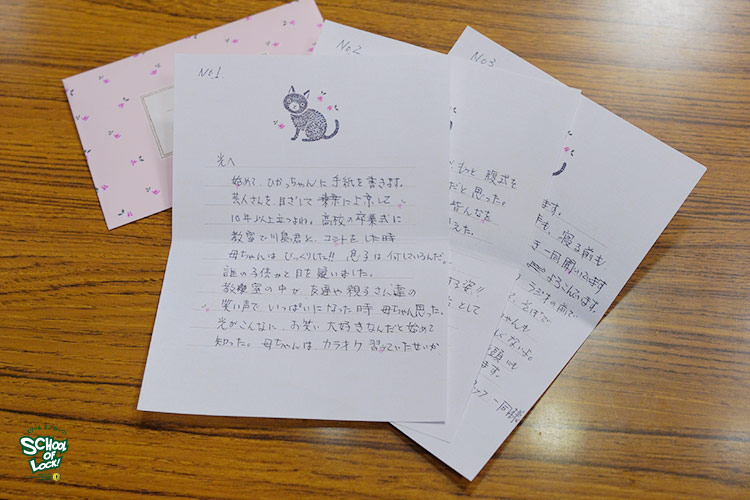 No.1
光へ
始めて、ひかっちゃんに手紙を書きます。
芸人さんを、目ざして 東京に上京して
10年以上立つよね。高校の卒業式に
教室で川島君と、コントをした時
母ちゃんは びっくりした!! 息子は何しているんだ。
誰の子供かと目を疑いました。
教室の中が 友達や親子さん達の
笑い声で いっぱいになった時 母ちゃん思った。
光がこんなに お笑い大好きなんだと始めて
知った。母ちゃんは、カラオケ習っていたせいか
No2
もっと 腹式を
だと思った。
皆んなを
えた。
する姿!!
として
No3
ます。
も、寝る前も
き一同聞いてます
よろこんでいます。
ラジオの前で
て、そばで
ちゃんも
くないよ。
頭にも
ます。
タッフ一同様
SCHOOL
OF
LOCK!